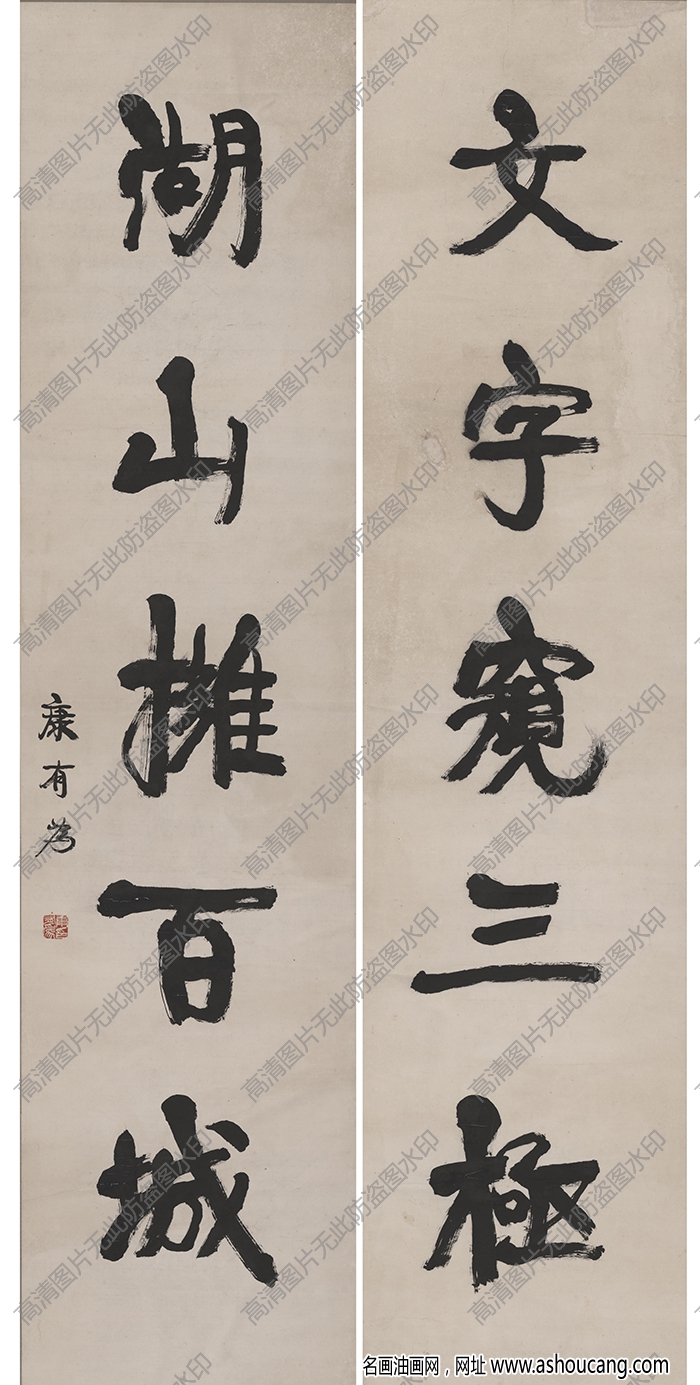 文字窺三極
湖山擁百城
康有為
高清图片无此防盗图水印
名画油画网，网址 www.ashoucang.com